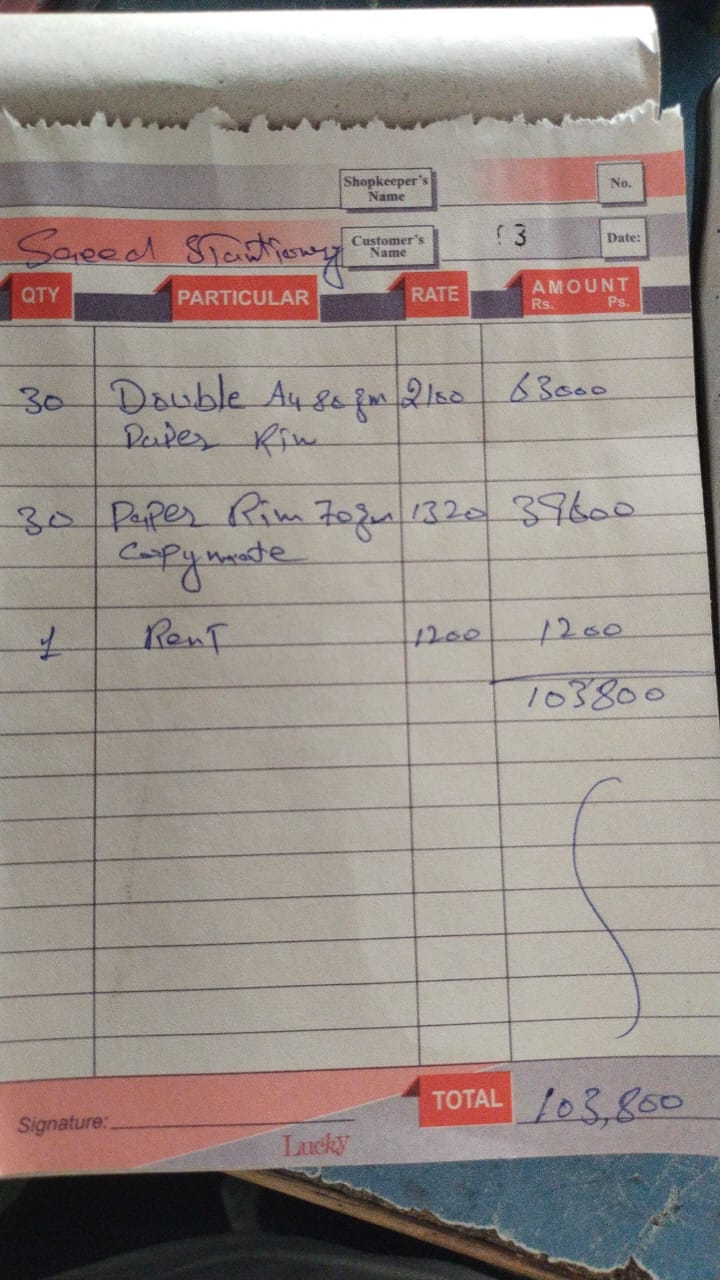 Shopkeeper's Name
No.
Saeed Stantionery
Customer's Name
Date:
QTY PARTICULAR RATE AMOUNT
Rs. Ps.
30 Double A4 80 gm 2100 63000
Paper Rim
30 Paper Rim 70gm 1320 39600
Copymate
1 Rent 1200 1200
103800
TOTAL 103,800
Signature:
Lucky